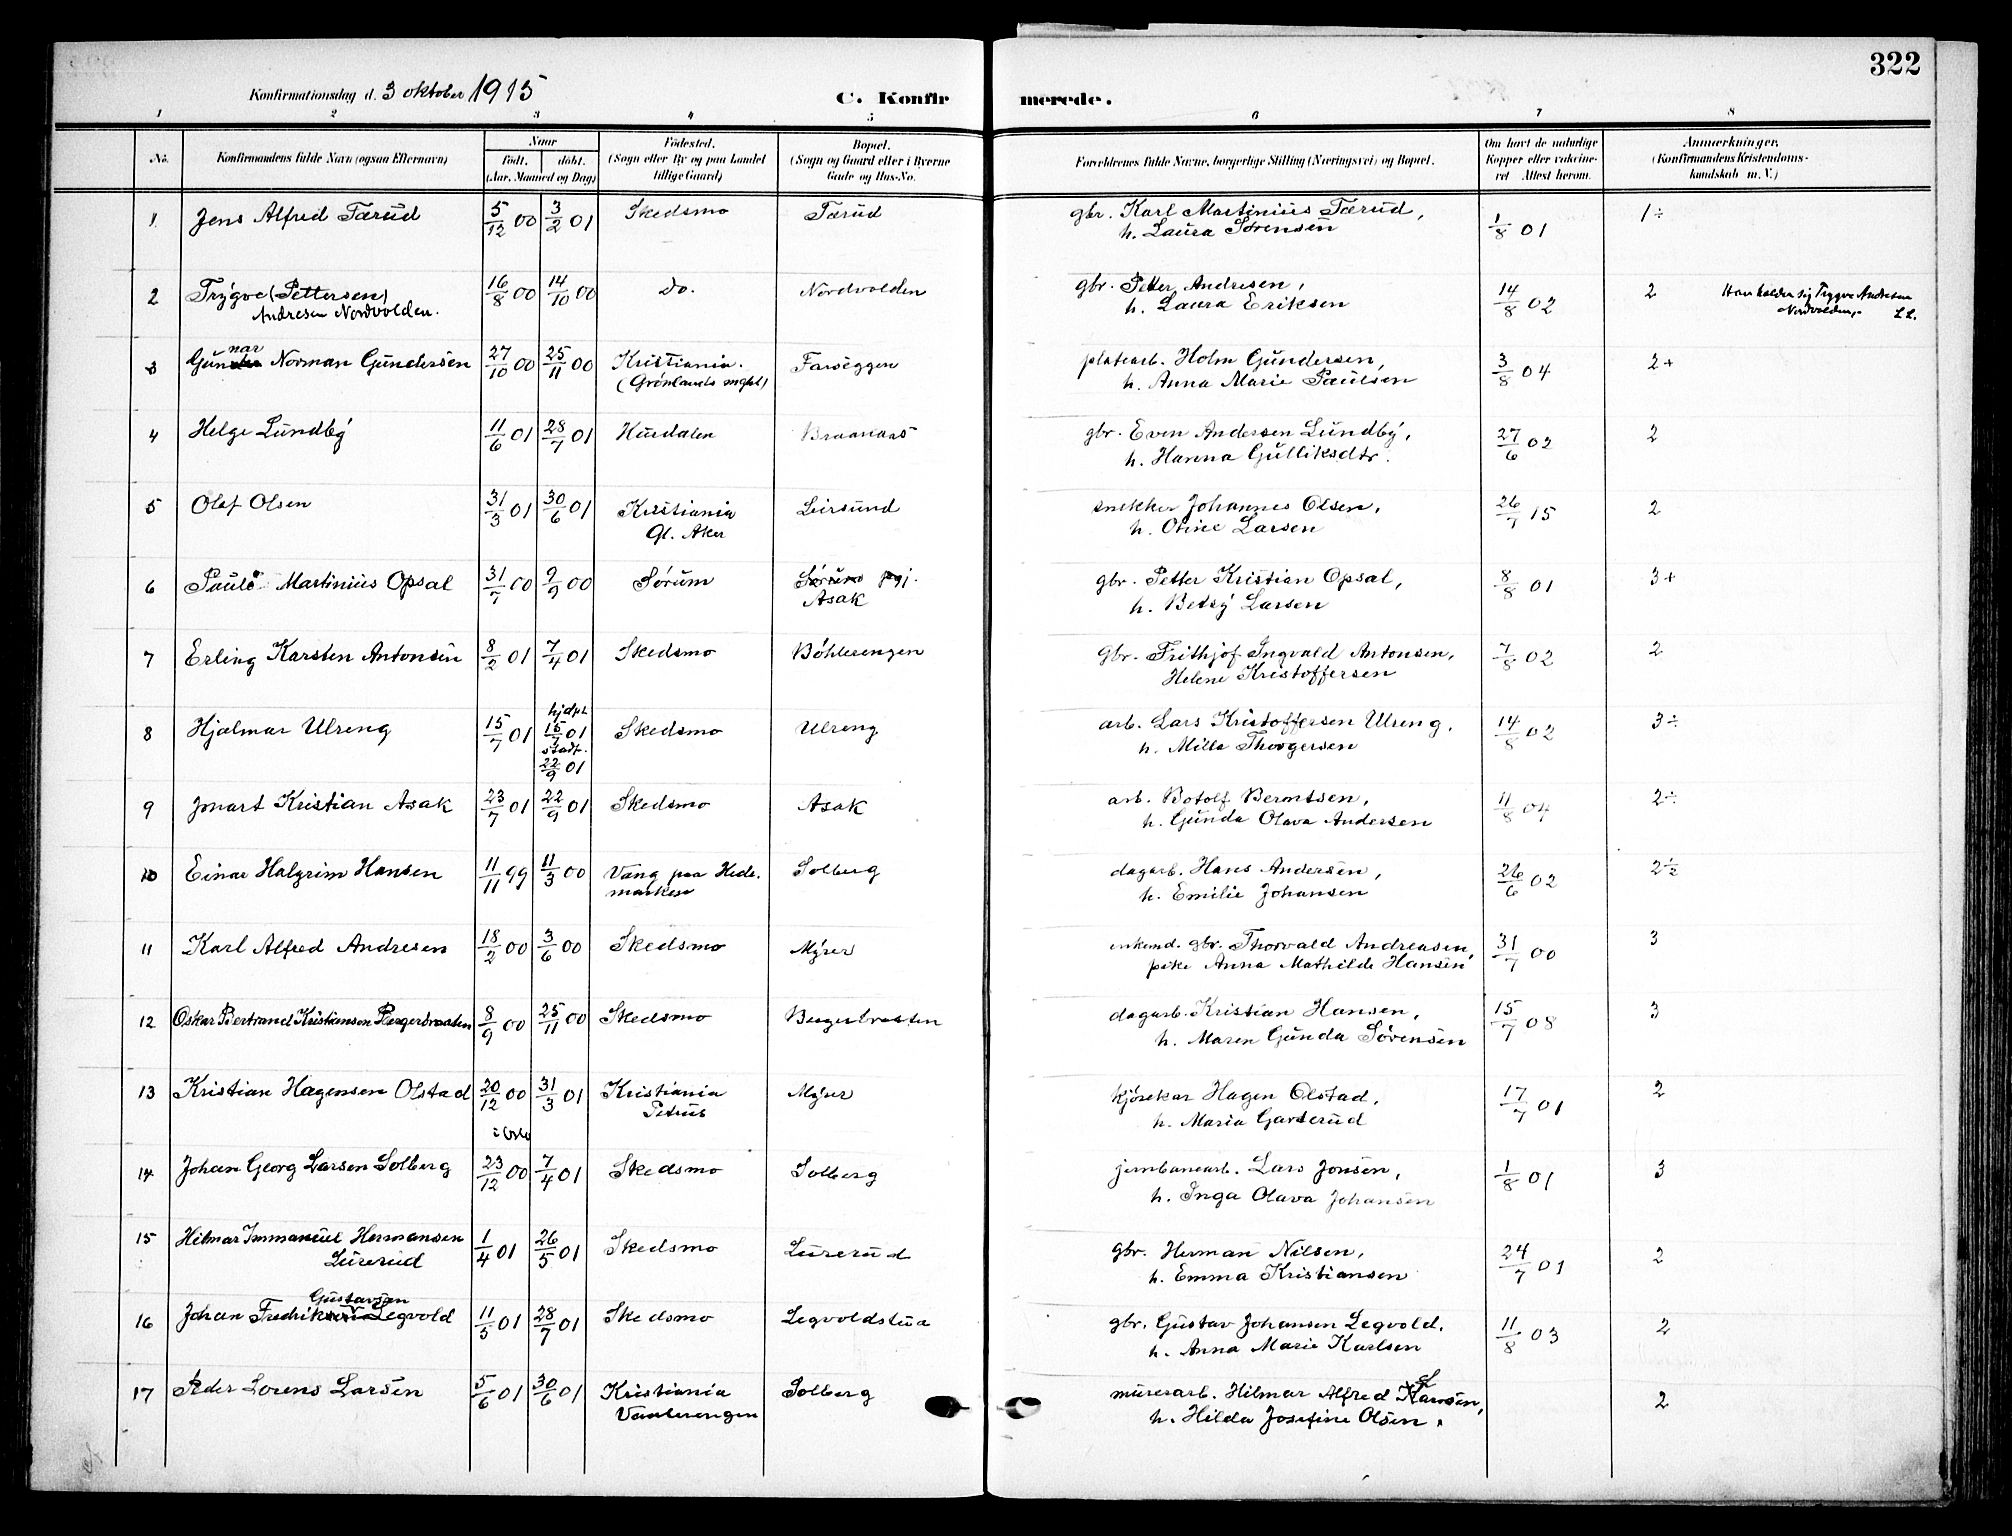 322
Konfirmationsdag d. 3 oktober 1915
C. Konfirmerede.
1 2 3 4 5 6 7 8
No.
Konfirmandens fulde Navn (ogsaa Efternavn)
Naar
født. døbt.
(Aar, Maaned og Dag)
Fødested.
(Sogn eller By og paa Landet
tillige Gaard)
Bopæl.
(Sogn og Gaard eller i Byerne
Gade og Hus-No.
Forældrenes fulde Navne, borgerlige Stilling (Næringsvei) og Bopæl.
Om havt de naturlige
Kopper eller vakcine-
ret Attest herom.
Anmærkninger,
(Konfirmandens Kristendoms-
kundskab m. V.)
1 Jens Alfred Tærud 5/12 00 3/2 01 Skedsmo Tærud gbr. Karl Martinius Tærud, 1/8 01 1÷
h. Laura Sørensen
2 Trygve (Pettersen) 16/8 00 14/10 00 do. Nordvolden gbr. Petter Andresen, 14/8 02 2 Han kalder sig Trygve Andresen
Andresen Nordvolden. h. Laura Eriksen Nordvolden, LL.
3 Gunnar Norman Gundersen 27/10 00 25/11 00 Kristiania. Farseggen platearb. Holm Gundersen, 3/8 04 2+
(Grønlands mght) h. Anna Marie Paulsen
4 Helge Lundby 11/6 01 28/7 01 Hurdalen Braanaas gbr. Even Andersen Lundby, 27/6 02 2
h. Hanna Gulliksdtr.
5 Olaf Olsen 31/3 01 30/6 01 Kristiania Leirsund snekker Johannes Olsen, 26/7 15 2
Gl. Aker h. Otine Larsen
6 Paul Martinius Opsal 31/7 00 9/9 00 Sørum Sørum pgj. gbr. Petter Kristian Opsal, 8/8 01 3+
Asak h. Betsy Larsen
7 Erling Karsten Antonsen 8/2 01 7/4 01 Skedsmo Bøhlerengen gbr. Frithjof Ingvald Antonsen, 7/8 02 2
Helene Kristoffersen
8 Hjalmar Ulreng 15/7 01 hjdpt. 15/7 01 stadf. 22/9 01 Skedsmo Ulreng arb. Lars Kristoffersen Ulreng, 14/8 02 3÷
h. Milla Thorgersen
9 Jonart Kristian Asak 23/7 01 22/9 01 Skedsmo Asak arb. Botolf Berntsen, 11/8 04 2÷
h. Gunda Olava Andersen
10 Einar Halgrim Hansen 11/11 99 11/3 00 Vang paa Hede- Solberg dagarb. Hans Andersen, 26/6 02 2½
marken h. Emilie Johansen
11 Karl Alfred Andresen 18/2 00 3/6 00 Skedsmo Myrer enkemd. gbr. Thorvald Andreasen, 31/7 00 3
pike Anna Mathilde Hansen
12 Oskar Bertrand Kristiansen Bergerbraaten 8/9 00 25/11 00 Skedsmo Bergerbraaten dagarb. Kristian Hansen, 15/7 08 3
h. Maren Gunda Sørensen
13 Kristian Hagensen Olstad 20/12 00 31/3 01 Kristiania Myrer kjørekar Hagen Olstad, 17/7 01 2
Petrus h. Maria Garserud
i Oslo
14 Johan Georg Larsen Solberg 23/12 00 7/4 01 Skedsmo Solberg jernbanearb. Lars Jonsen, 1/8 01 3
h. Inga Olava Johansen
15 Hilmar Immanuel Hermansen 1/4 01 26/5 01 Skedsmo Lurerud gbr. Herman Nilsen, 24/7 01 2
Lurerud h. Emma Kristiansen
Gustavsen
16 Johan Fredrik Legvold 11/5 01 28/7 01 Skedsmo Legvoldstua gbr. Gustav Johansen Legvold, 11/8 03 2
h. Anna Marie Karlsen
17 Peder Lorens Larsen 5/6 01 30/6 01 Kristiania Solberg murerarb. Hilmar Alfred Larsen, 2
Vaalerengen h. Hilda Josefine Olsen,